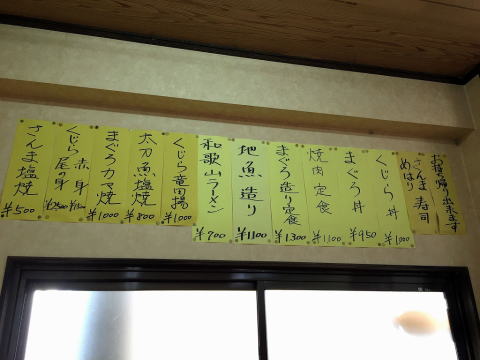 お持ち帰り出来ます
さんま寿司
めはり
くじら丼
¥1000
まぐろ丼
¥950
焼肉定食
¥1,100
まぐろ造り定食
¥1300
地魚造り
¥1100
和歌山ラーメン
¥700
くじら竜田揚
¥1000
太刀魚塩焼
¥800
まぐろカマ焼
¥1000
くじら
赤身
尾の身
さんま塩焼
¥500